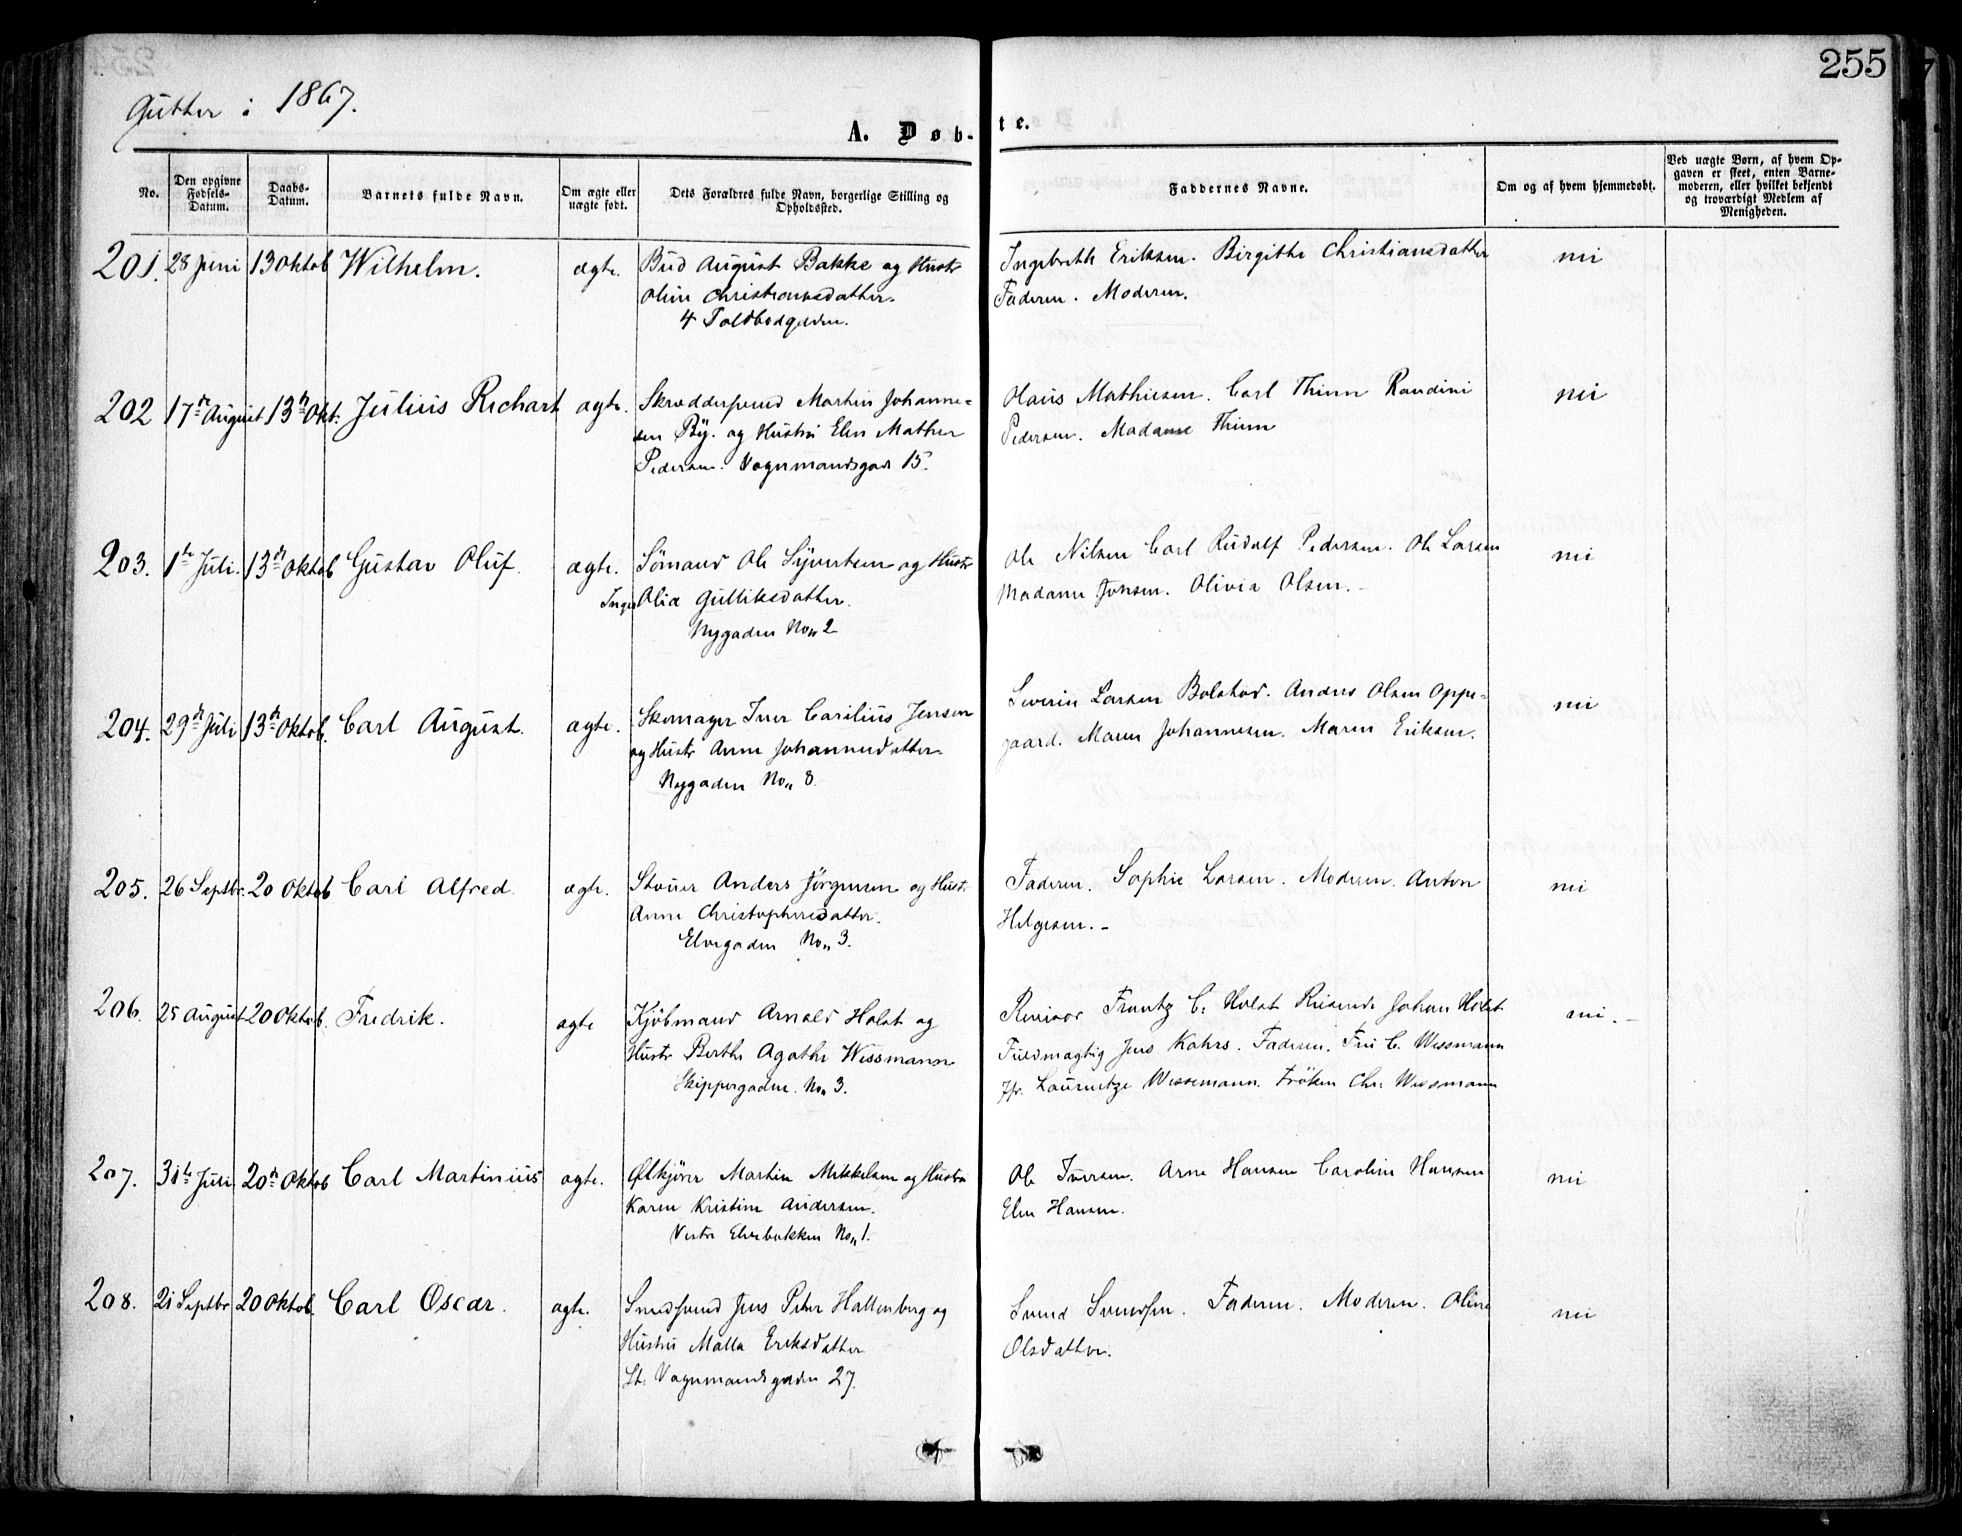 255
Gutter i 1867.
A. Døbte.
No.
Den opgivne Fødsels-Datum.
Daabs-Datum.
Barnets fulde Navn.
Om ægte eller uægte født.
Dets Forældres fulde Navn, borgerlige Stilling og Opholdssted.
Faddernes Navne.
Om og af hvem hjemmedøbt.
Ved uægte Børn, af hvem Opgaven er skeet, enten Barnemoderen, eller hvilket bekjendt og troværdigt Medlem af Menigheden.
201. 28 Juni 13 Oktob Wilhelm. ægte. Bud August Bakke og Hustr
Oline Christiansdatter.
4 Toldbodgaden.
Ingebreth Eriksen. Birgithe Christiansdatter
Faderen. Moderen.
nei
202 17de August 13de Okt. Julius Richart ægte. Skrædersvend Martin Johanne-
sen By. og Hustru Elen Mathea
Pedersen. Vognmandsgade 15.
Hans Mathiesen. Carl Thinn Randini
Pedersen. Madame Thinn
nei
203. 1te Juli. 13de Oktob Gustav Oluf. ægte. Sømand Ole Syvertsen og Hustr
Inger Olia Gulliksdatter.
Nygaden No 2
Ole Nilsen Carl Rudolf Pedersen. Ole Larsen
Madame Jonsen. Olivia Olsen.
nei
204. 29de Juli 13de Oktob. Carl August. ægte. Skomager Iver Carilius Jensen
og Hustr Anne Johannesdatter.
Nygaden No 8.
Severin Larsen Bolstad. Anders Olsen Oppe-
gaard. Maren Johannesen. Maren Eriksen.
nei
205. 26 Septbr. 20 Oktob Carl Alfred. ægte. Stouer Anders Jørgensen og Hustr.
Anne Christophersdatter.
Elvegaden No 3.
Faderen. Sophie Larsen. Moderen. Anton
Helgesen.
nei
206. 25 August 20 Oktob. Fredrik. ægte Kjøbmand Arnold Holst og
Hustr Berthe Agathe Wessmann
Skippergaden. No 3.
Revisor Frantz C. Holst Reisende Johan Holst
Fuldmægtig Jens Kahrs. Faderen. Fru C. Wessmann
Jfr. Laurentze Wessemann. Frøken Chr. Wessmann
nei.
207. 31te Juli 20de Oktob Carl Martinius ægte. Ølkjører Martin Mikkelsen og Hustru
Karen Kristine Andersen.
Vestre Elvebakken No 1.
Ole Iversen. Arne Hansen Caroline Hansen
Elen Hansen.
nei
208. 21 Septbr. 20 Oktob. Carl Oscar. ægte. Smedsvend Jens Peter Hallenberg og
Hustru Malla Eriksdatter
St. Vognmandsgaden 27.
Svend Svendsen. Faderen. Moderen. Oline
Olsdatter.
nei